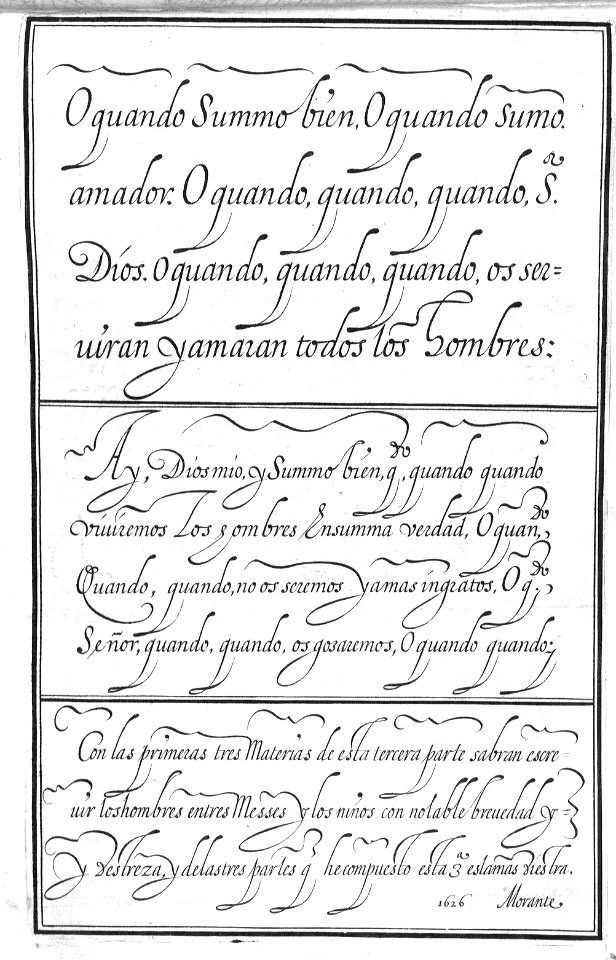 O quando Summo bien, O quando sumo.
amador. O quando, quando, quando, S.ʳ
Dios. O quando, quando, quando, os ser=
uiran yamaran todos los hombres:
Ay, Dios mio, y Summo bien, q̃.ᵈᵒ, quando quando
viuiremos Los hombres Ensumma verdad, O quan,ᵈᵒ,
Quando, quando, no os seremos yamas ingratos, O q̃.ᵈᵒ,
Señor, quando, quando, os gosaremos, O quando quando;
Con las primeras tres Materias de esta tercera parte sabran escre=
uir los hombres entres Messes y los niños con notable breuedad y=
y Destreza, y delas tres partes q̃ he compuesto esta 3.ª es la mas diestra.
1626 Morante,